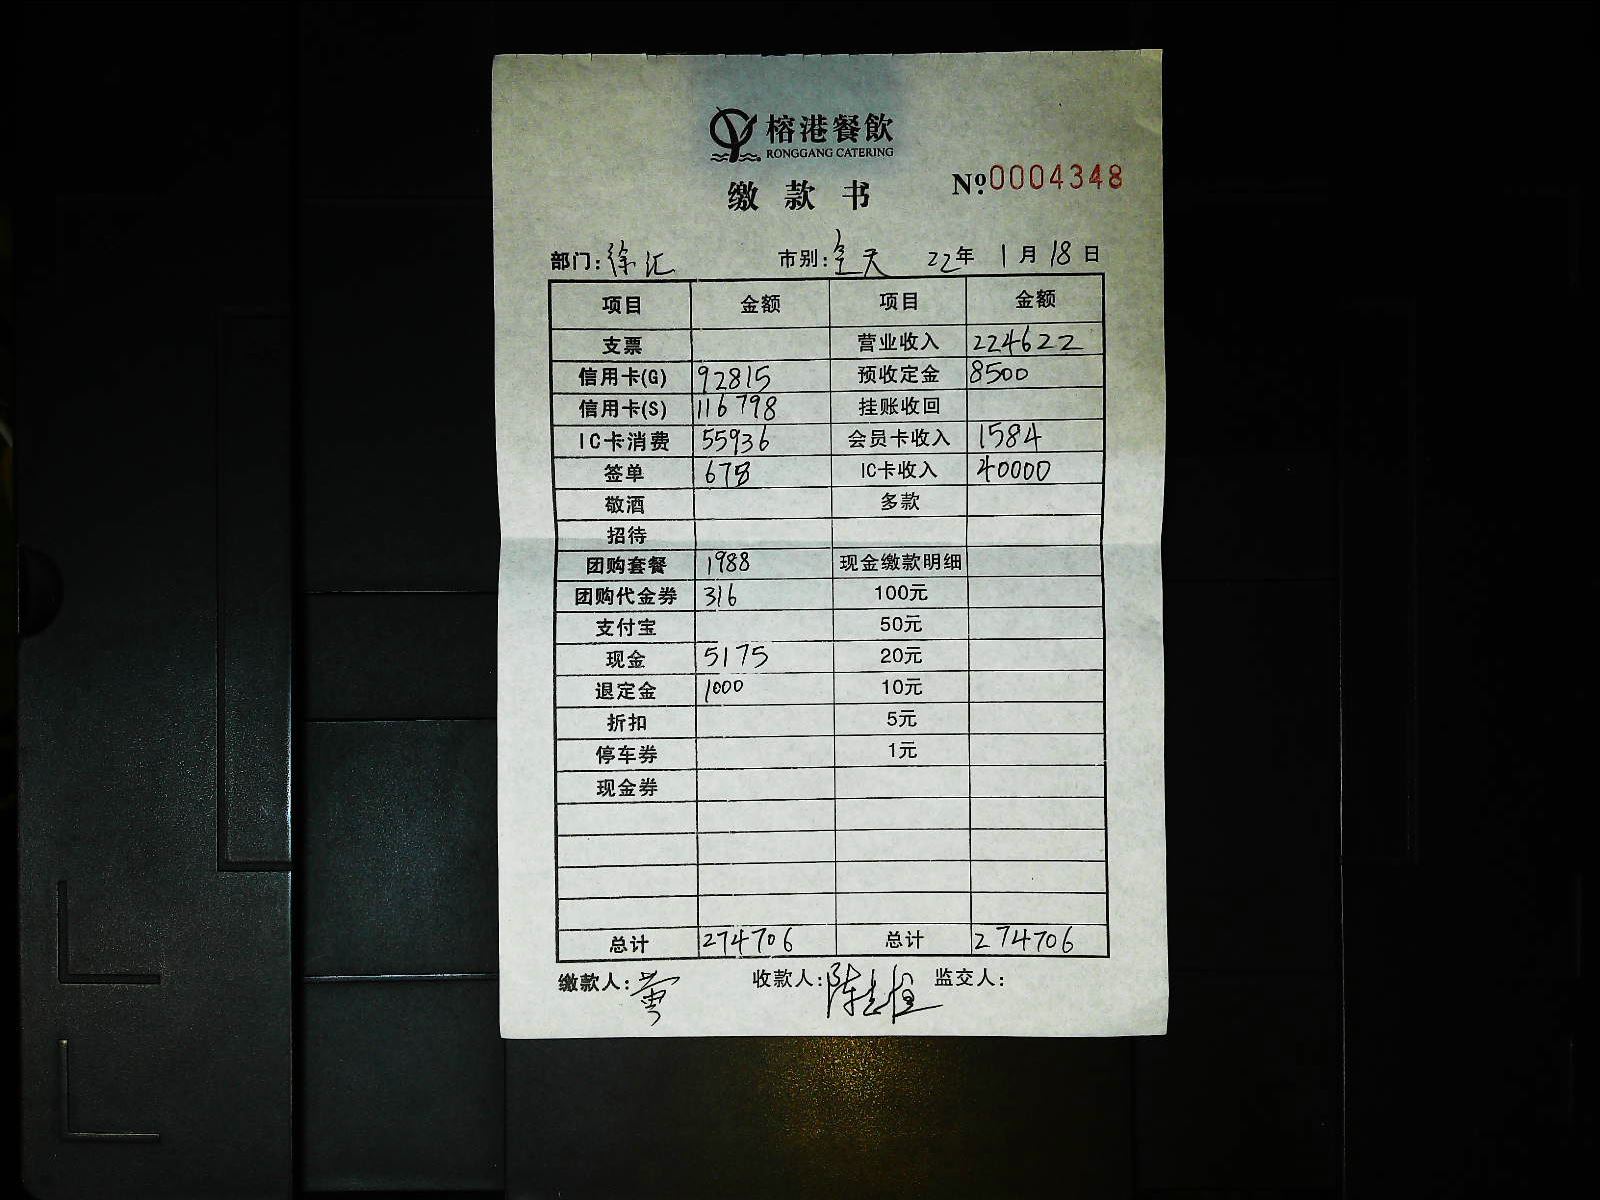 榕港餐飲
RONGGANG CATERING
缴款书 №0004348
部门:徐汇 市别:全天 22年 1月18日
项目 金额 项目 金额
支票 营业收入 224622
信用卡(G) 92815 预收定金 8500
信用卡(S) 116798 挂账收回
IC卡消费 55936 会员卡收入 1584
签单 678 IC卡收入 40000
敬酒 多款
招待
团购套餐 1988 现金缴款明细
团购代金券 316 100元
支付宝 50元
现金 5175 20元
退定金 1000 10元
折扣 5元
停车券 1元
现金券
总计 274706 总计 274706
缴款人: 收款人: 监交人: